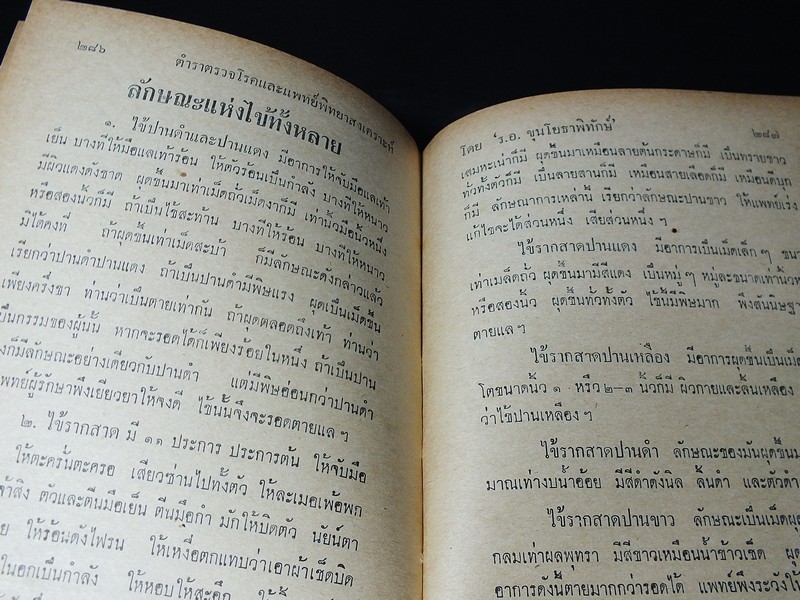 ๒๘๖
ตำราตรวจโรคและแพทย์พิทยาสงเคราะห์
ลักษณะแห่งไข้ทั้งหลาย
๑. ไข้ปานดำและปานแดง มีอาการให้จับมือแลเท้า
เย็น บางทีให้มือแลเท้าร้อน ให้ตัวร้อนเป็นกำลัง บางทีให้หนาว
มีผิวแดงดังชาด ผุดขึ้นมาเท่าเม็ดถั่วเม็ดงาก็มี เท่านิ้วมือนิ้วหนึ่ง
หรือสองนิ้วก็มี ถ้าเป็นไข้สะท้าน บางทีให้ร้อน บางทีให้หนาว
มิได้คงที่ ถ้าผุดขึ้นเท่าเม็ดสะบ้า ก็มีลักษณะดังกล่าวแล้ว
เรียกว่าปานดำปานแดง ถ้าเป็นปานดำมีพิษแรง ผุดเป็นเม็ดขึ้น
เพียงครึ่งขา ท่านว่าเป็นตายเท่ากัน ถ้าผุดตลอดถึงเท้า ท่านว่า
เป็นกรรมของผู้นั้น หากจะรอดได้ก็เพียงร้อยในหนึ่ง ถ้าเป็นปาน
งก็มีลักษณะอย่างเดียวกับปานดำ แต่มีพิษอ่อนกว่าปานดำ
พทย์ผู้รักษาพึงเยียวยาให้จงดี ไข้นั้นจึงจะรอดตายแลฯ
๒. ไข้รากสาด มี ๑๑ ประการ ประการต้น ให้จับมือ
ให้ตะครั่นตะครอ เสียวซ่านไปทั้งตัว ให้ละเมอเพ้อพก
จ้าสิง ตัวและตีนมือเย็น ตีนมือกำ มักให้บิดตัว นัยน์ตา
ย ให้ร้อนดังไฟรน ให้เหงื่อตกแทบว่าเอาผ้าเช็ดบิด
ในอกเป็นกำลัง ให้หอบให้สะอึก
โดย 'ร.อ. ขุนโยธาพิทักษ์'
๒๘๗
เสมหะเน่าก็มี ผุดขึ้นมาเหมือนลายต้นกระดาษก็มี เป็นทรายขาว
ทั่วทั้งตัวก็มี เป็นลายสานก็มี เหมือนลายเลือดก็มี เหมือนดีบุก
ก็มี ลักษณาการเหล่านี้ เรียกว่าลักษณะปานขาว ให้แพทย์เร่ง
แก้ไขจะได้ส่วนหนึ่ง เสียส่วนหนึ่งฯ
ไข้รากสาดปานแดง มีอาการเป็นเม็ดเล็กๆ ขนา
เท่าเมล็ดถั่ว ผุดขึ้นมามีสีแดง เป็นหมู่ๆ หมู่ละขนาดเท่านิ้วห
หรือสองนิ้ว ผุดขึ้นทั่วทั้งตัว ไข้นี้มีพิษมาก พึงสันนิษฐา
ตายแลฯ
ไข้รากสาดปานเหลือง มีอาการผุดขึ้นเป็นเม็ด
โตขนาดนิ้ว ๑ หรือ ๒–๓ นิ้วก็มี ผิวกายและลิ้นเหลือง
ว่าไข้ปานเหลืองฯ
ไข้รากสาดปานดำ ลักษณะของมันผุดขึ้นม
มาณเท่างบน้ำอ้อย มีสีดำดังนิล ลิ้นดำ และตัวดำ
ไข้รากสาดปานขาว ลักษณะเป็นเม็ดผุด
กลมเท่าผลพุทรา มีสีขาวเหมือนน้ำข้าวเช็ด ผุด
อาการดังนี้ตายมากกว่ารอดได้ แพทย์พึงระวังให้